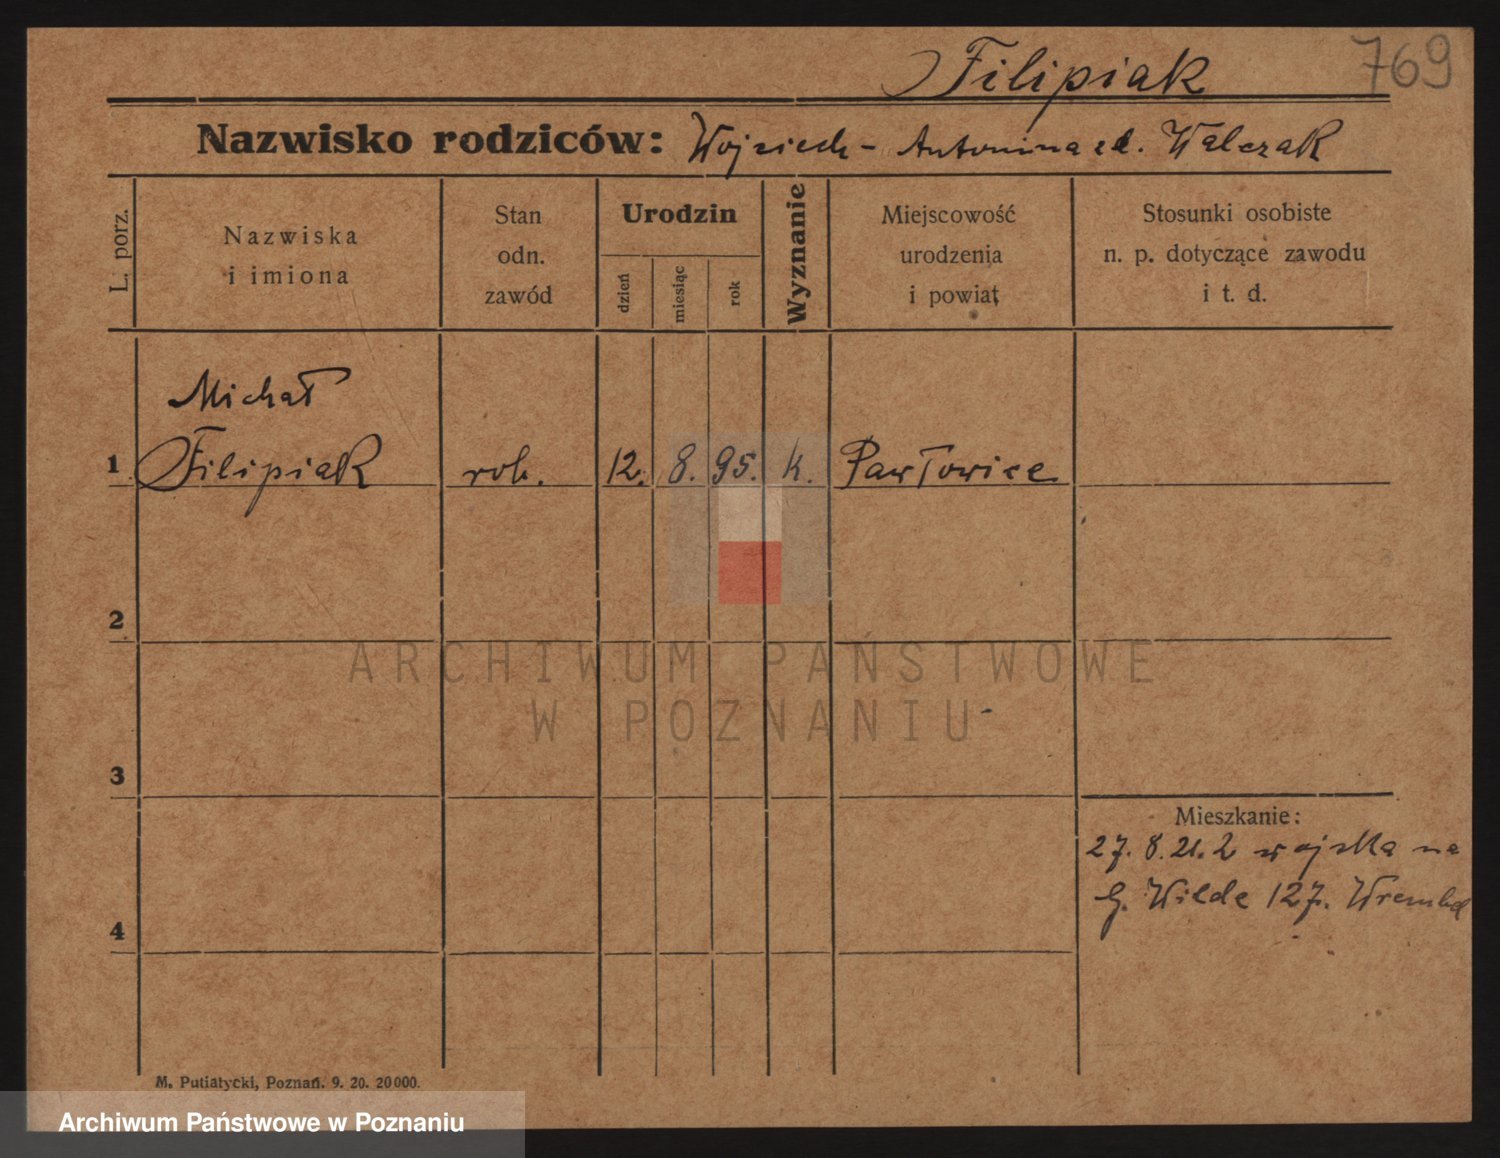 Filipiak 769
Nazwisko rodziców: Wojciech - Antonina zd. Walczak
L. porz.
Nazwiska
i imiona
Stan
odn.
zawód
Urodzin
dzień
miesiąc
rok
Wyznanie
Miejscowość
urodzenia
i powiat
Stosunki osobiste
n. p. dotyczące zawodu
i t. d.
Michał
1 Filipiak rob. 12. 8. 95. k. Pawłowice
2
ARCHIWUM PAŃSTWOWE
W POZNANIU
3
Mieszkanie:
27. 8. 21. z wojska na
G. Wilde 127.
4
M. Putiatycki, Poznań. 9. 20. 20000.
Archiwum Państwowe w Poznaniu